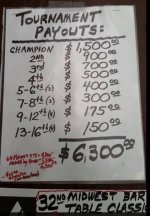 TOURNAMENT
PAYOUTS:
CHAMPION $1,500.00
2nd 900.00
3rd 700.00
4th 500.00
5-6th(s) 400.00
7-8th(s) 300.00
9-12th(s) $ 175.00
13-16th(s) $ 150.00
$6,300.00
32ND MIDWEST BAR
TABLE CLASSIC